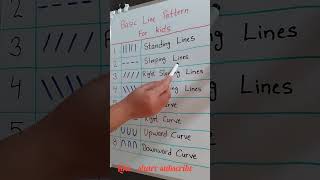 Basic Line Pattern
For kids
1 Standing Lines
2 Sleeping Lines
3 Right Slanting Lines
4 Slanting Lines
Curve
Right Curve
Upward Curve
8 Downward Curve
share subscribe